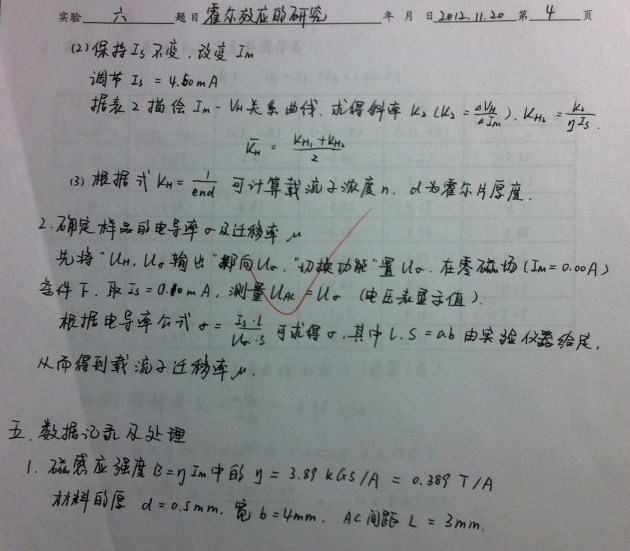 实验 六 题目 霍尔效应的研究 年 月 日 2012.11.20 第 4 页
(2) 保持 Is 不变, 改变 Im
调节 Is = 4.50mA
据表2描绘 Im - VH 关系曲线, 求得斜率 K2 (K2 = ΔVH/ΔIm), KH2 = K2/ηIs.
K̄H = (KH1+KH2)/2
(3) 根据式 KH = 1/end 可计算载流子浓度 n, d为霍尔片厚度.
2. 确定样品的电导率σ及迁移率 μ
先将“UH, Uσ输出”掷向Uσ, “切换功能”置Uσ. 在零磁场 (Im = 0.00A)
条件下, 取 Is = 0.10mA, 测量 UAC = Uσ (电压表显示值).
根据电导率公式 σ = Is·L/Uσ·S 可求得σ, 其中 L, S = ab 由实验仪器给定,
从而得到载流子迁移率 μ.
五、数据记录及处理
1. 磁感应强度 B = ηIm 中的 η = 3.89 kGS/A = 0.389 T/A
材料的厚 d = 0.5mm, 宽 b = 4mm, AC间距 L = 3mm.